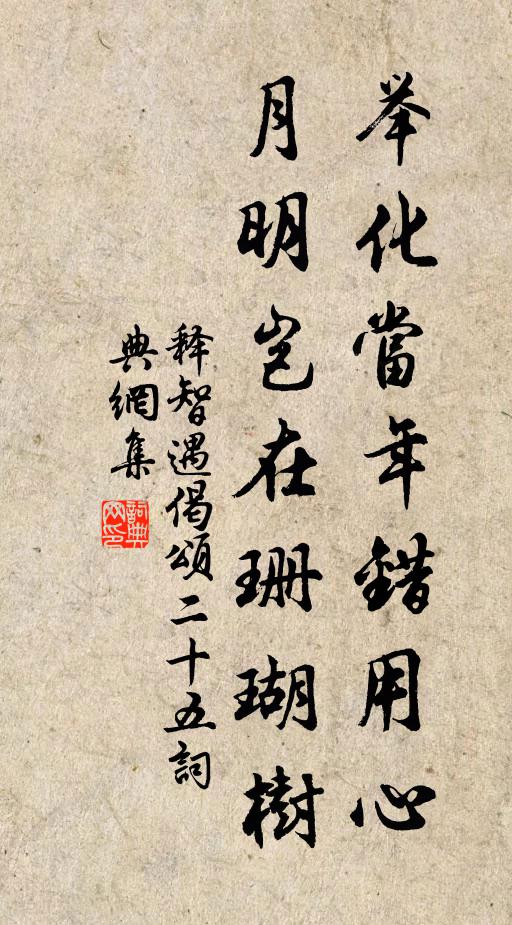 举化當年錯用心
月明岂在珊瑚樹
释智遇偈頌二十五詞
典網集
詞典網印